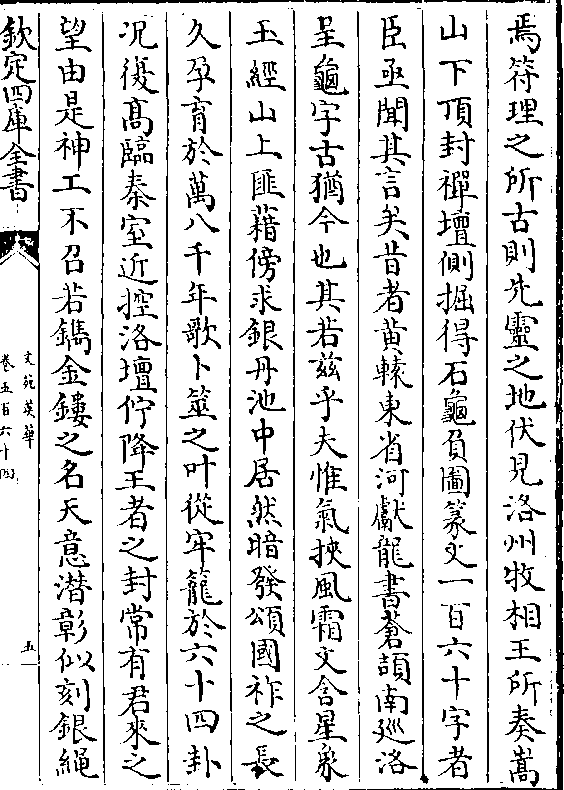 焉符理之所古則先靈之地伏見洛州牧相王所奏嵩
山下頂封禪壇側掘得石龜負圖篆文一百六十字者
臣亟聞其言矣昔者黃轅東省河獻龍書蒼頡南廵洛
呈龜字古猶今也其若兹乎夫惟氣挾風霜文含星象
玉經山上匪藉傍求銀丹池中居然暗發頌國祚之長
久孕育於萬八千年歌卜筮之叶從牢籠於六十四卦
况復髙臨秦室近控洛壇佇降王者之封常有君來之
望由是神工不召若鐫金鏤之名天意潜彰似刻銀繩
欽定四庫全書
文苑英華
卷五百六十四
五